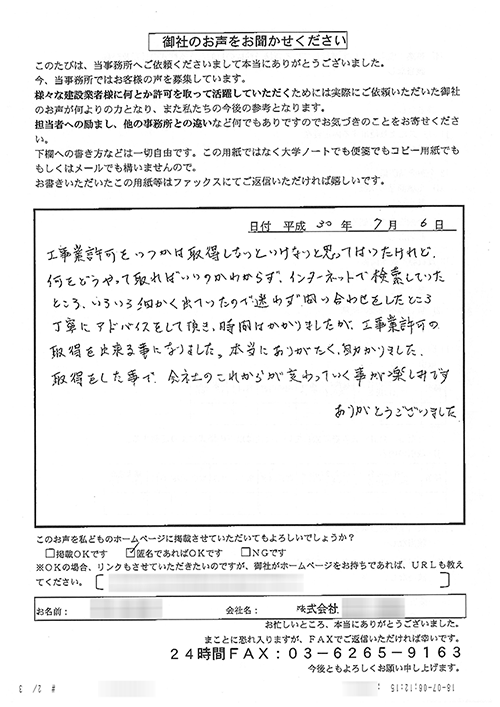 御社のお声をお聞かせください
このたびは、当事務所へご依頼くださいまして本当にありがとうございました。
今、当事務所ではお客様の声を募集しています。
様々な建設業者様に何とか許可を取って活躍していただくためには実際にご依頼いただいた御社
のお声が何よりの力となり、また私たちの今後の参考となります。
担当者への励まし、他の事務所との違いなど何でもありですのでお気づきのことをお寄せくださ
い。
下欄への書き方などは一切自由です。この用紙ではなく大学ノートでも便箋でもコピー用紙でも
もしくはメールでも構いませんので。
お書きいただいたこの用紙等はファックスにてご返信いただければ嬉しいです。
日付 平成 30 年 7 月 6 日
工事業許可をいつかは取得しないといけないと思ってはいたけれど、
何をどうやって取ればいいのかわからず、インターネットで検索していた
ところ、いろいろ細かく出ていたので迷わず問い合わせをしたところ
丁寧にアドバイスをして頂き、時間はかかりましたが、工事業許可の
取得を出来る事になりました。本当にありがたく、助かりました。
取得をした事で、会社のこれからが変わっていく事が楽しみです
ありがとうございました
このお声を私どものホームページに掲載させていただいてもよろしいでしょうか?
□掲載OKです ☑匿名であればOKです □NGです
※OKの場合、リンクもさせていただきたいのですが、御社がホームページをお持ちであれば、URLも教え
てください。
お名前: 会社名: 株式会社
お忙しいところ、本当にありがとうございました。
まことに恐れ入りますが、FAXでご返信いただければ幸いです。
24時間FAX:03-6265-9163
今後ともよろしくお願い申し上げます。
18-07-06;12:15 ; # 2/ 3